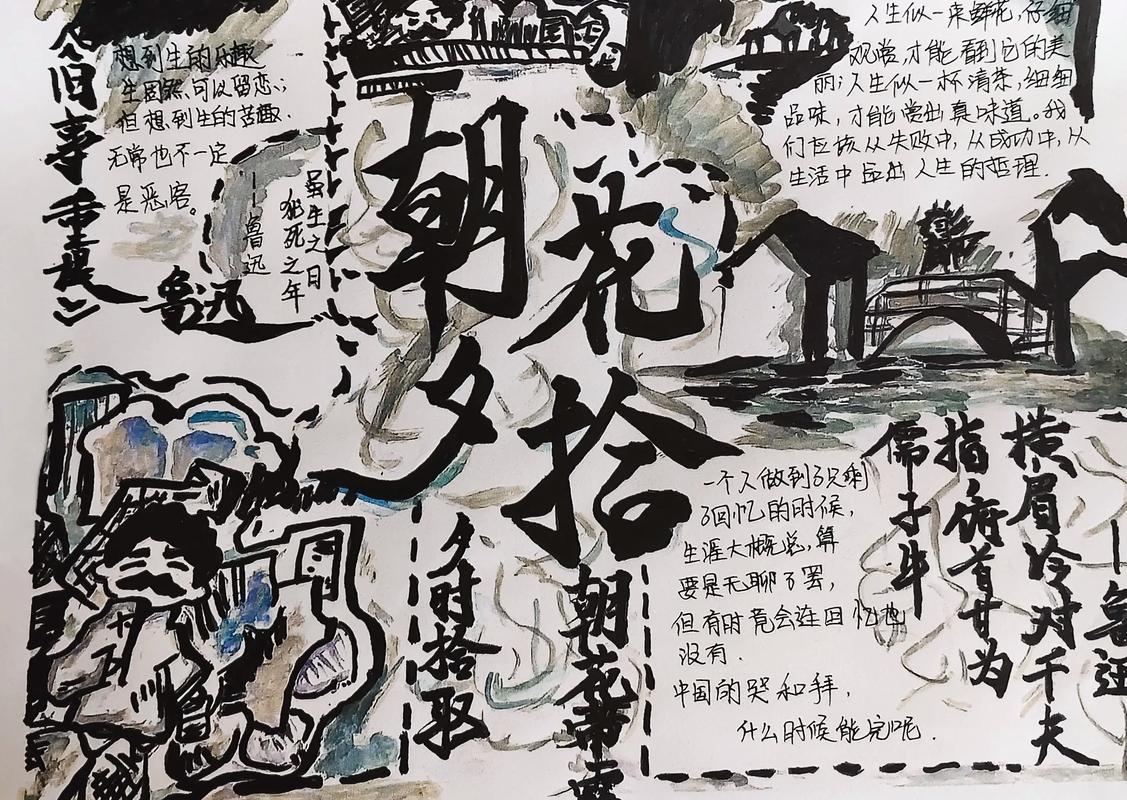 朝花
夕拾
《旧事重提》
想到生的乐趣
生固然可以留恋;
但想到生的苦趣.
无常也不一定
是恶客。
—鲁迅
虽生之日
犹死之年
鲁迅
人生似一束鲜花,仔细
观赏,才能看到它的美
丽;人生似一杯清茶,细细
品味,才能赏出真味道。我
们应该从失败中,从成功中,从
生活中品出人生的哲理.
横眉冷对千夫
指俯首甘为
儒子牛
—鲁迅
一个人做到了只剩
了回忆的时候,
生涯大概说,算
要是无聊了罢,
但有时竟会连回忆也
没有.
中国的哭和拜,
什么时候能完呢.
朝花带露
夕时拾取